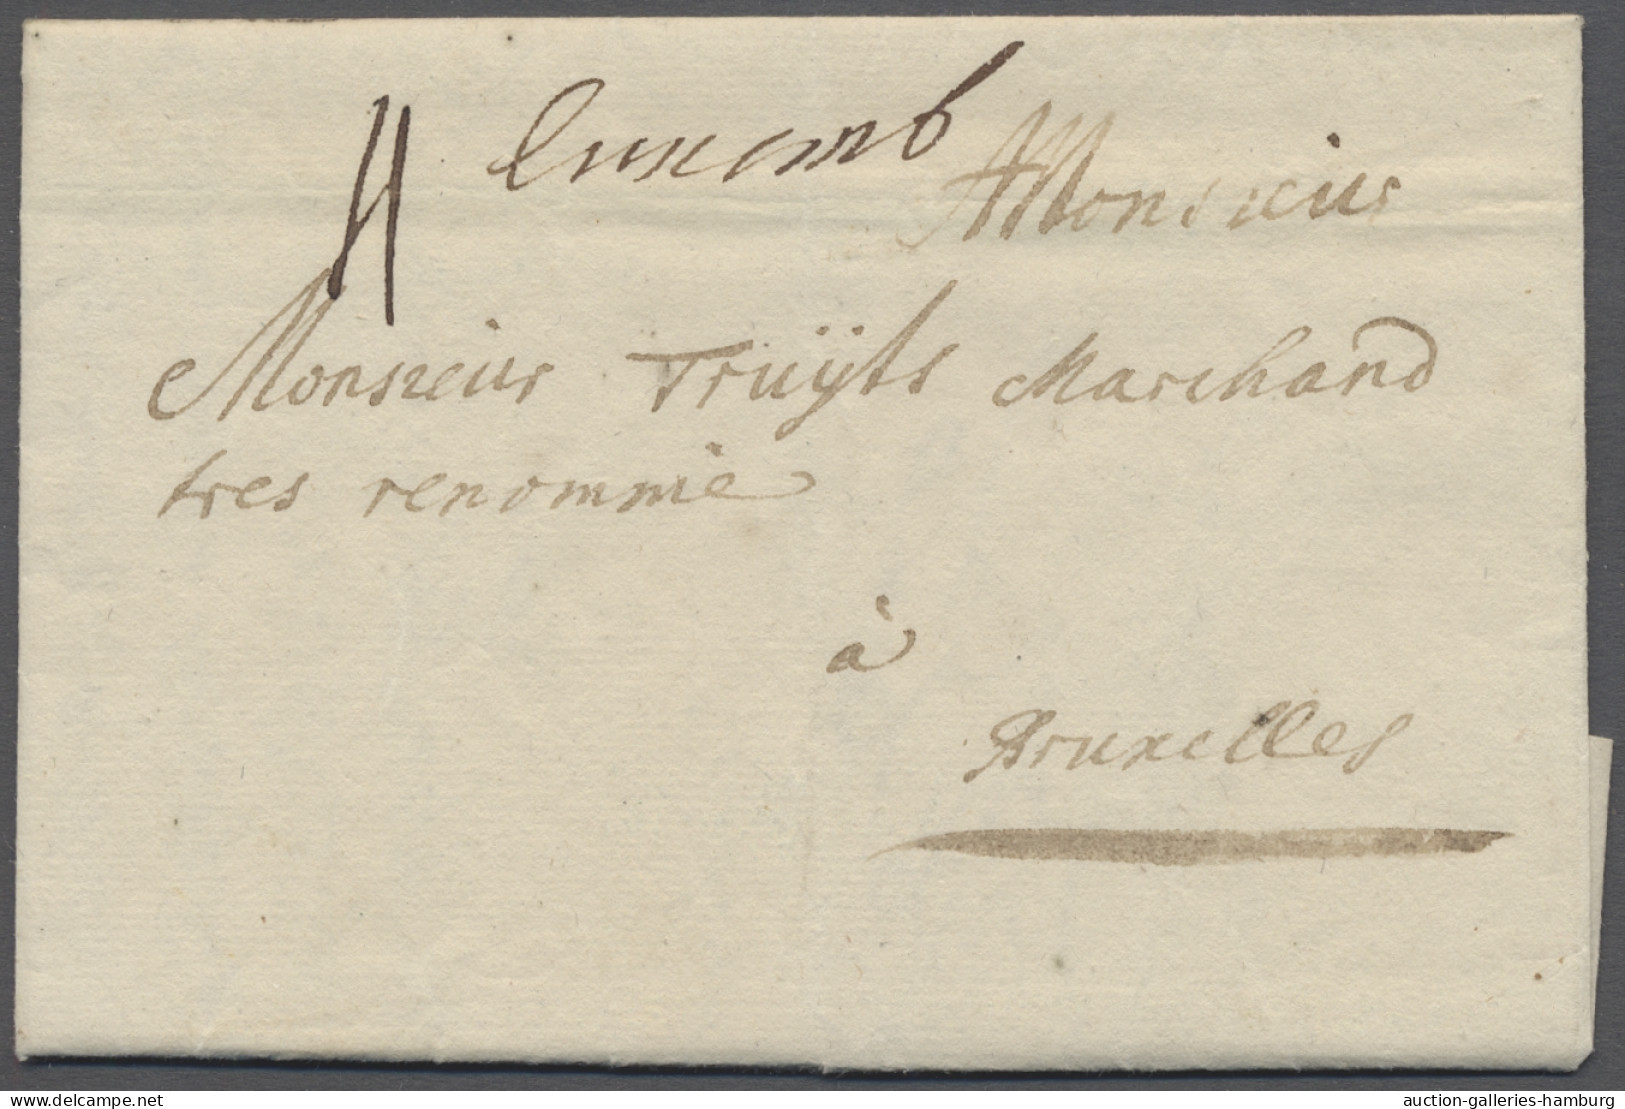 4 Luxemb
Monsieur
Monsieur Truÿts Marchand
tres renommé
à
Bruxelles
www.delcampe.net
auction-galleries-hamburg